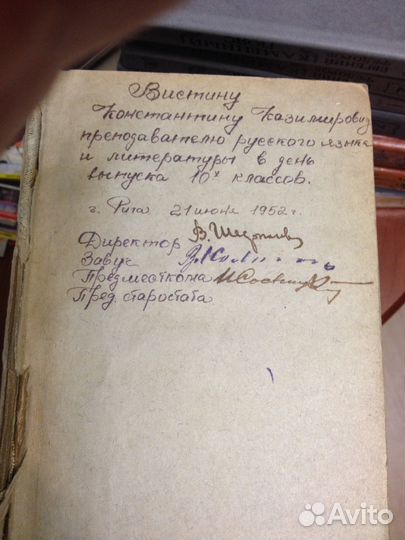 Вистину
Константину Казимировичу
преподавателю русского языка
и литературы в день
выпуска 10х классов.
г. Рига 21 июня 1952 г.
Директор
Завуч
Пред. месткома
Пред. старостата
Avito